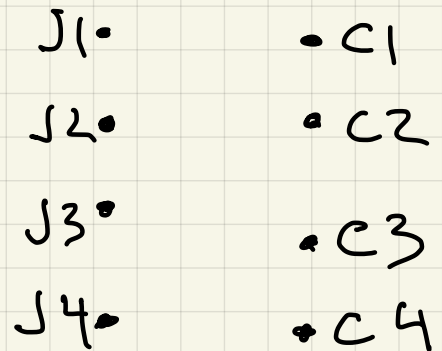 J1 C1
J2 C2
J3 C3
J4 C4